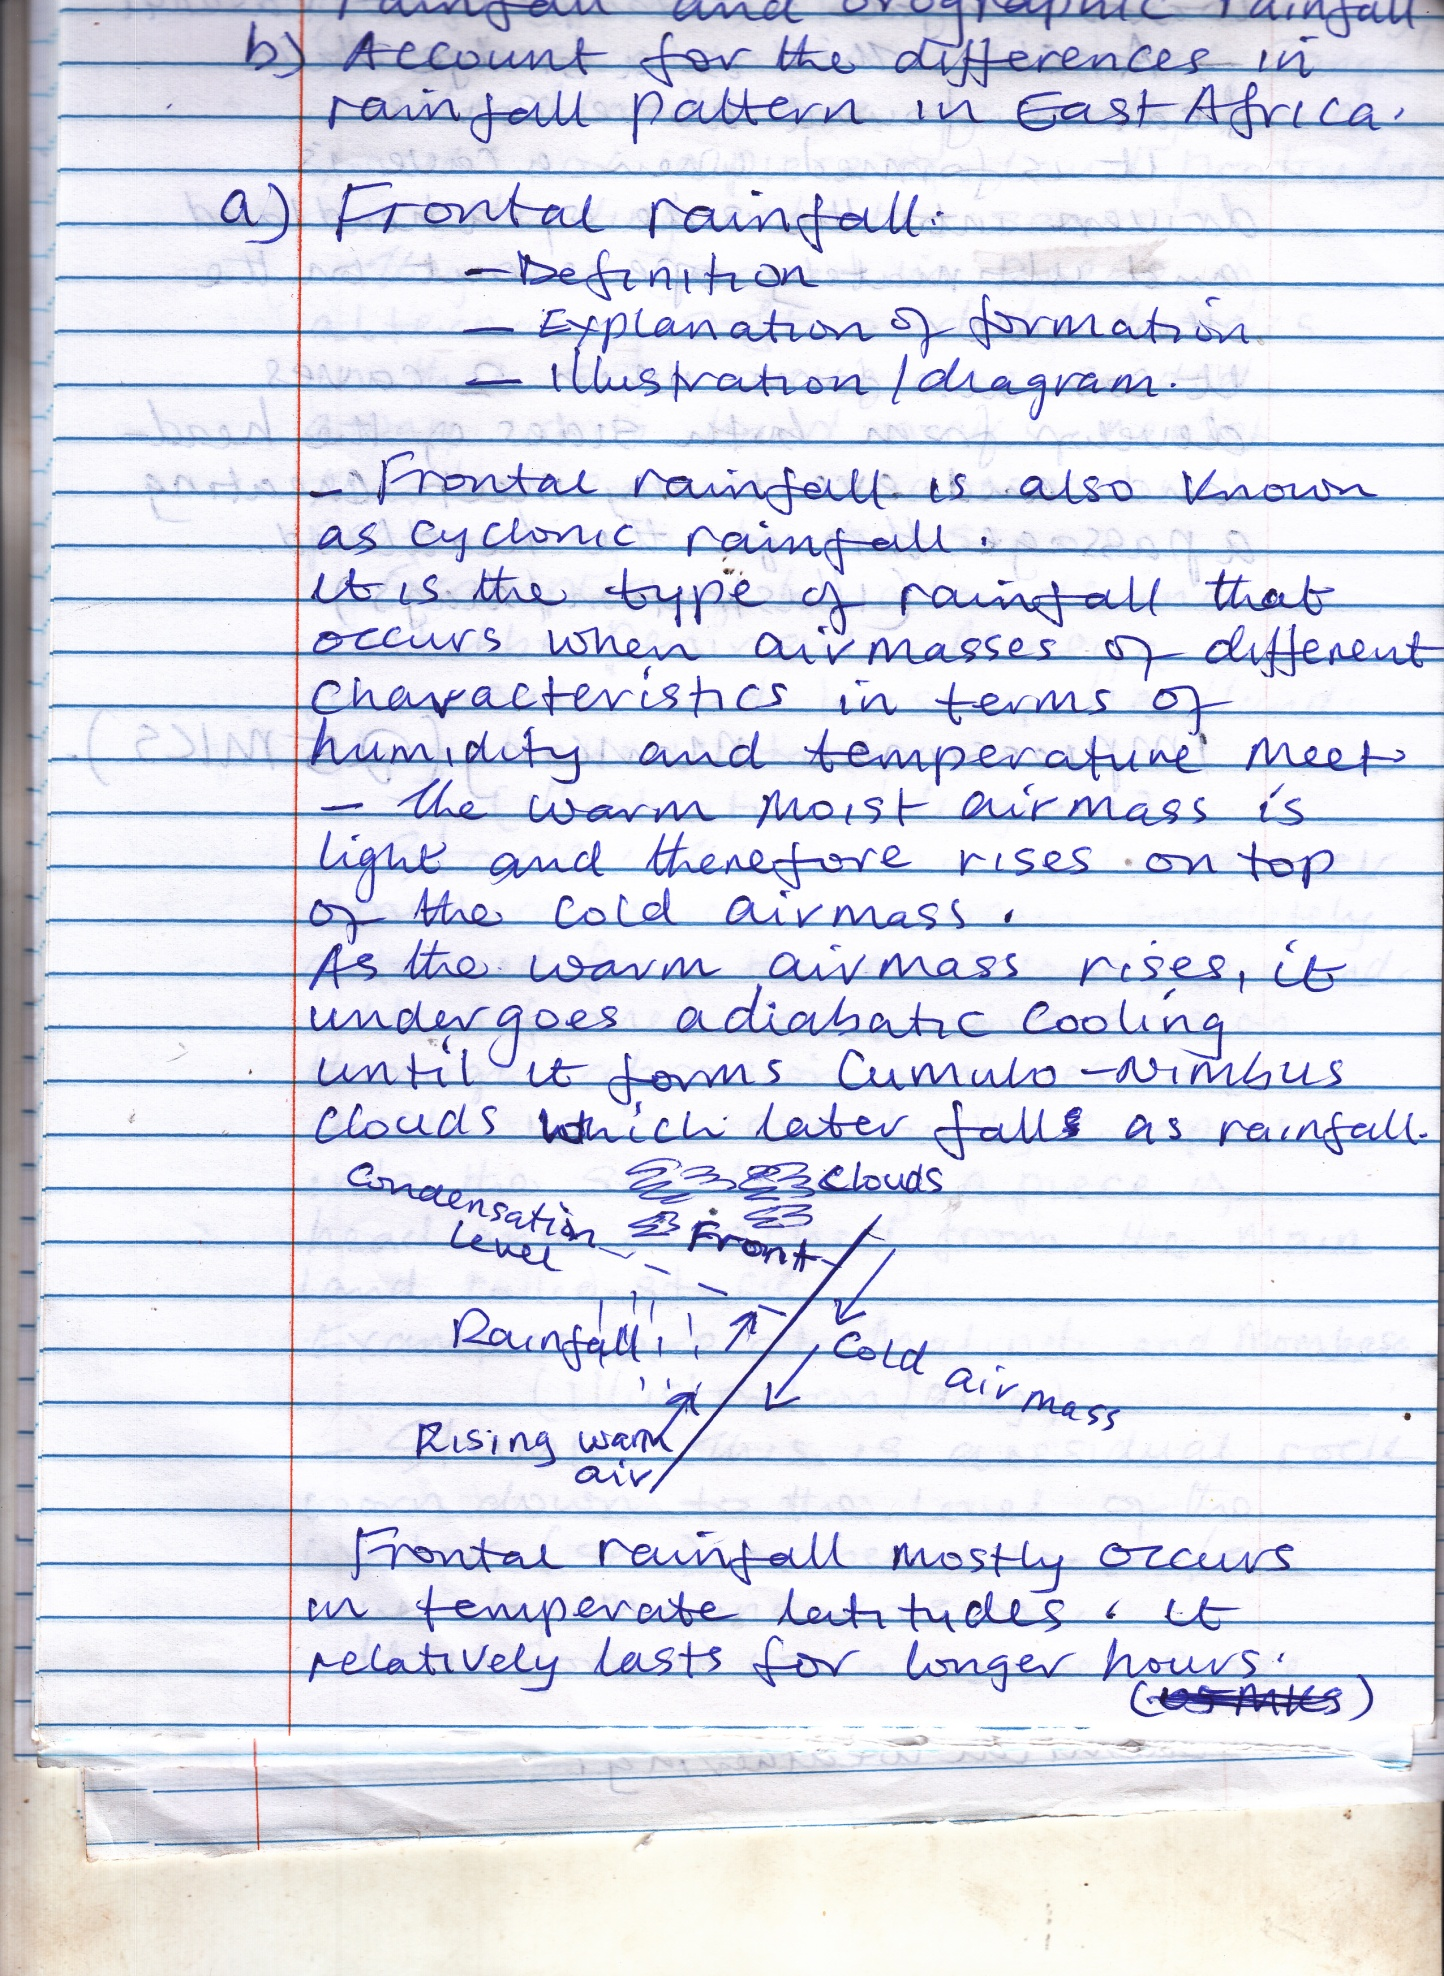 rainfall and orographic rainfall
b) Account for the differences in
rainfall pattern in East Africa.
a) Frontal rainfall.
- Definition
- Explanation of formation
- Illustration/diagram.
- Frontal rainfall is also known
as cyclonic rainfall.
It is the type of rainfall that
occurs when airmasses of different
characteristics in terms of
humidity and temperature meet
- the warm moist airmass is
light and therefore rises on top
of the cold airmass.
As the warm airmass rises, it
undergoes adiabatic cooling
until it forms Cumulo-Nimbus
clouds which later falls as rainfall.
Clouds
Condensation
level
Front
Rainfall
Cold air mass
Rising warm
air
Frontal rainfall mostly occurs
in temperate latitudes. It
relatively lasts for longer hours.